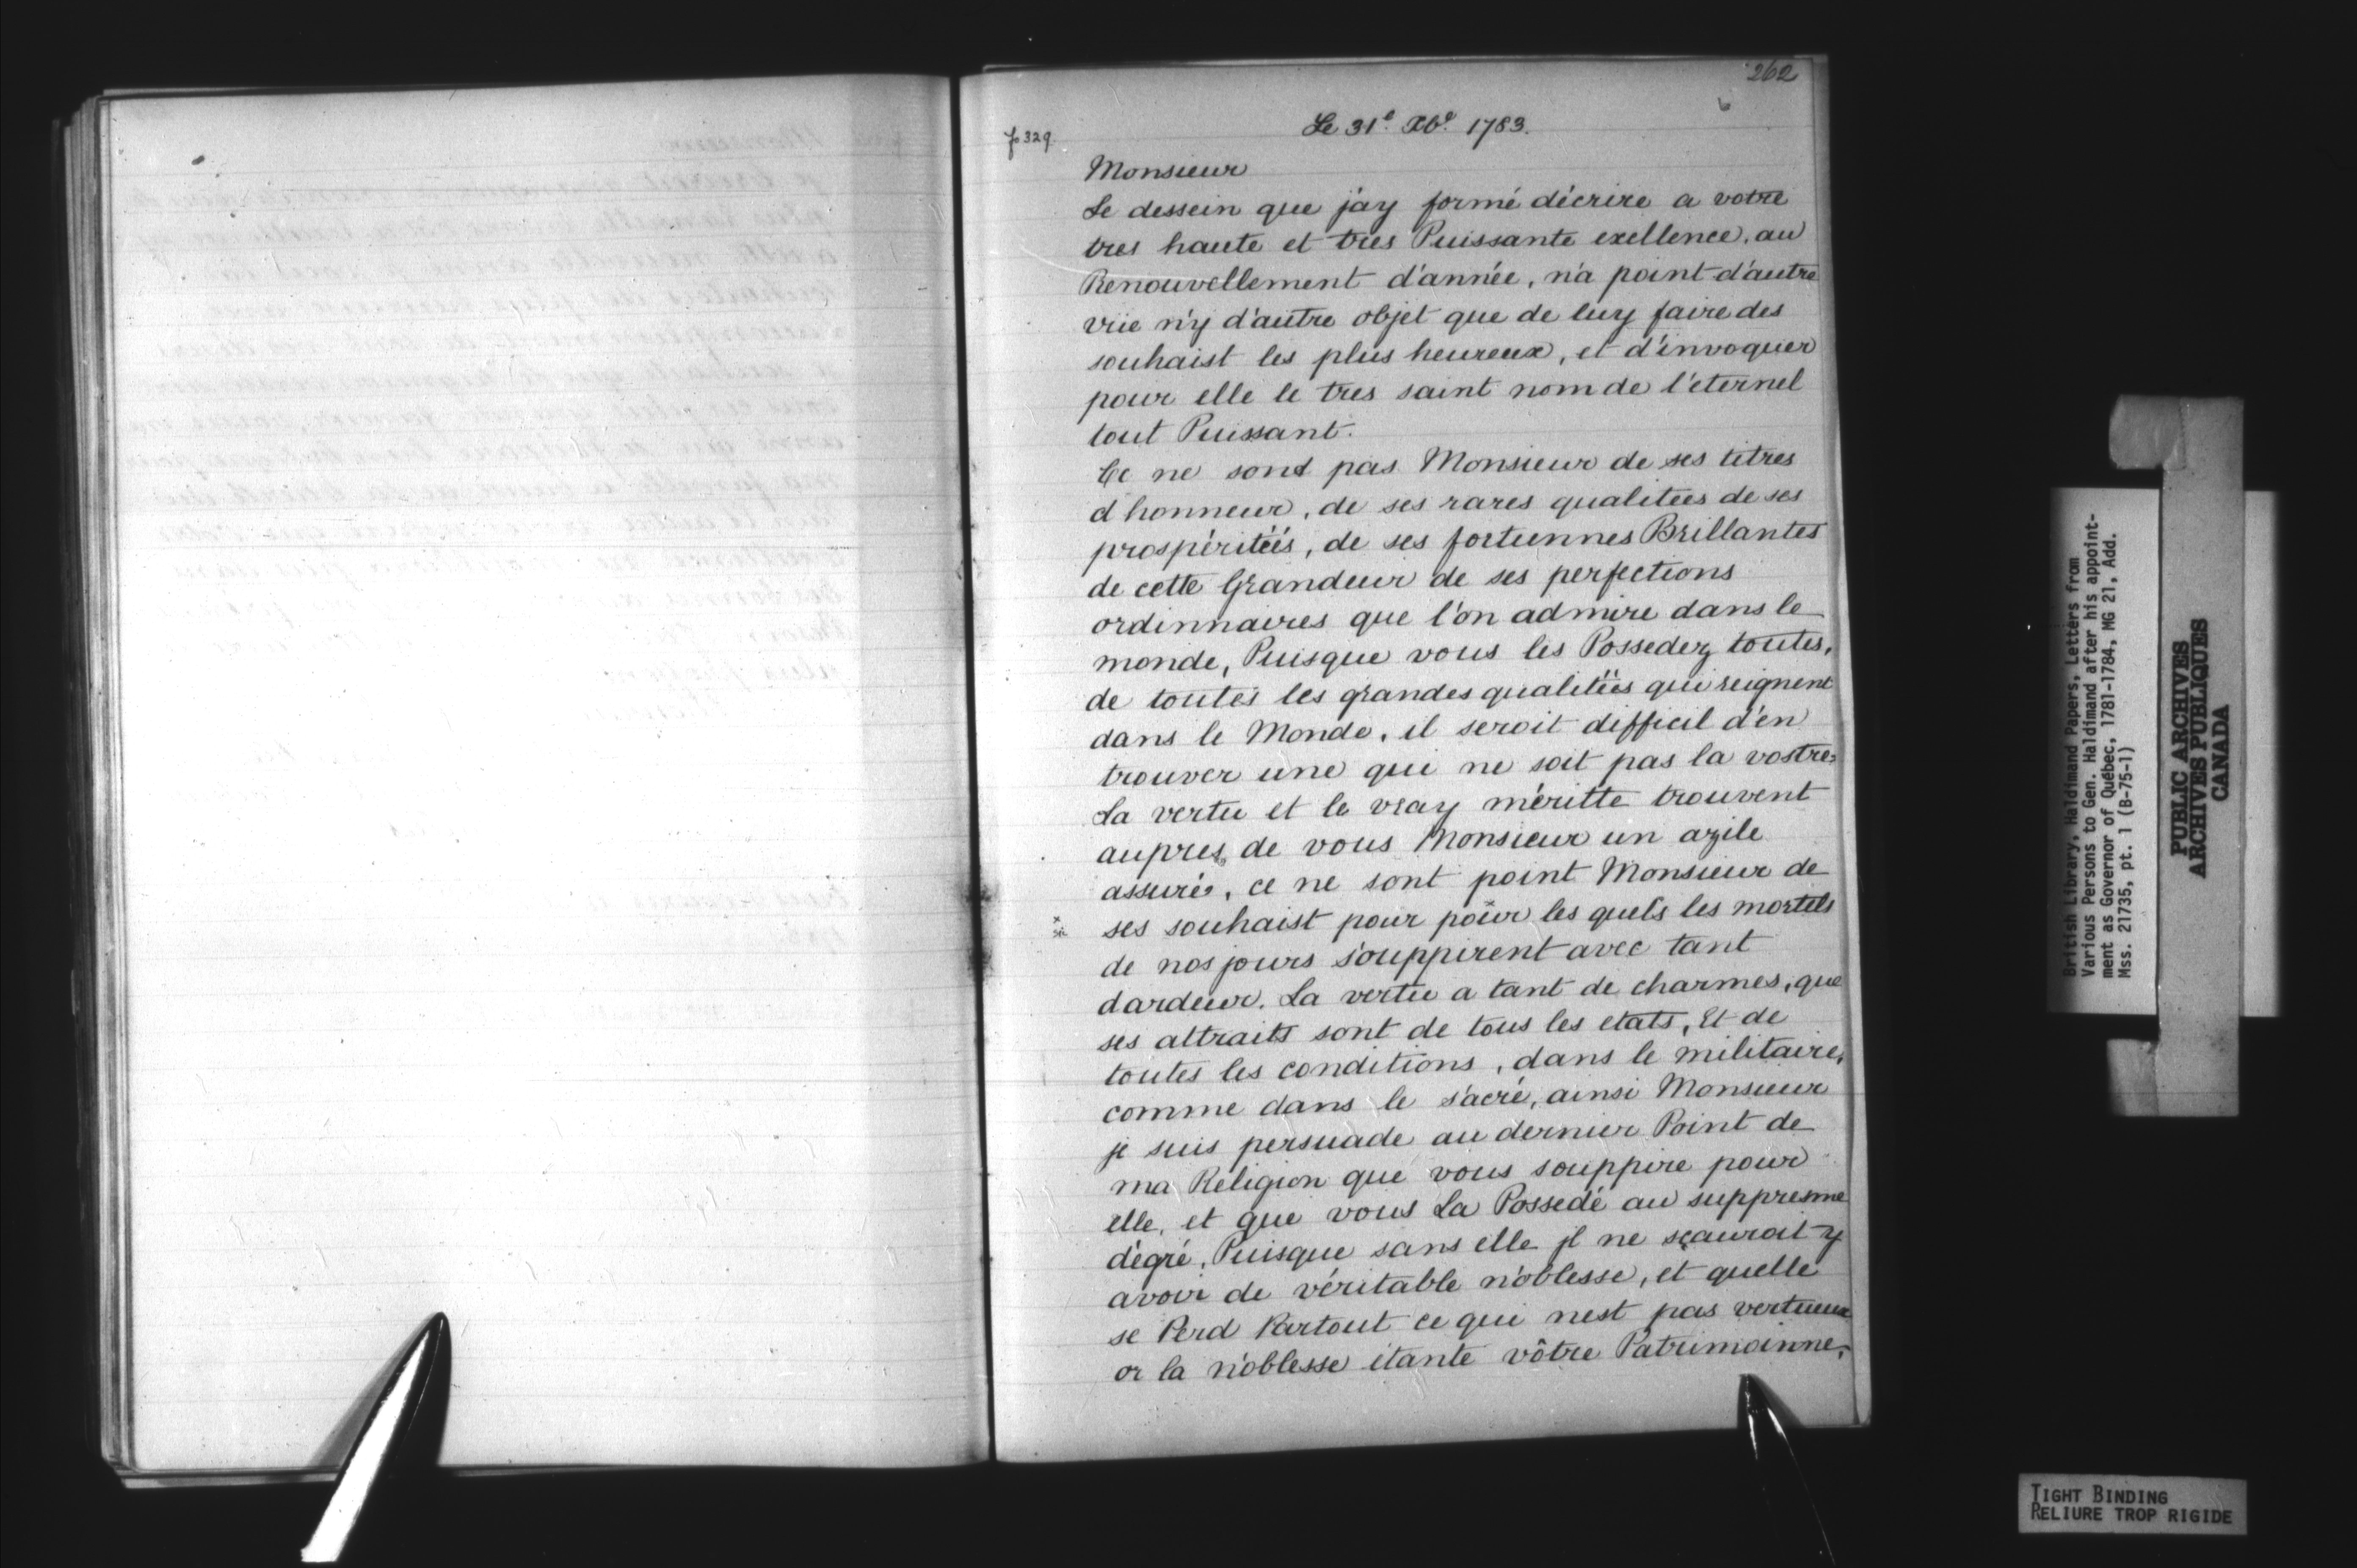 262
6
f 329.
Le 31e. Xbe. 1783.
Monsieur
Le dessein que j'ay formé d'écrire a votre
tres haute et tres Puissante exellence, au
Renouvellement d'année, n'a point d'autre
vüe n'y d'autre objet que de luy faire des
souhaist les plus heureux, et d'invoquer
pour elle le tres saint nom de l'eternel
tout Puissant.
Ce ne sont pas Monsieur de ses titres
d'honneur, de ses rares qualitees de ses
prospéritéés, de ses fortunnes Brillantes
de cette Grandeur de ses perfections
ordinnaires que l'on admire dans le
monde, Puisque vous les Possedez toutes,
de toutes les grandes qualitéés qui reignent
dans le Monde, il seroit difficil d'en
trouver une qui ne soit pas la vostre,
La vertu et le vray méritte trouvent
aupres de vous Monsieur un azile
assuré, ce ne sont point Monsieur de
ses souhaist pour pour les quels les mortels
de nos jours souppirent avec tant
dardeur. La vertu a tant de charmes, que
ses attraits sont de tous les etats, Et de
toutes les conditions, dans le militaire,
comme dans le sacré, ainsi Monsieur
je suis persuade au dernier Point de
ma Religion que vous souppire pour
elle, et que vous La Possedé au suppresme
dégré, Puisque sans elle jl ne sçauroit y
avoir de véritable noblesse, et quelle
se Perd Partout ce qui nest pas vertueux
or la noblesse étante vôtre Patrimoinne,
British Library, Haldimand Papers, Letters from
Various Persons to Gen. Haldimand after his appoint-
ment as Governor of Québec, 1781-1784, MG 21, Add.
Mss. 21735, pt. 1 (B-75-1)
PUBLIC ARCHIVES
ARCHIVES PUBLIQUES
CANADA
TIGHT BINDING
RELIURE TROP RIGIDE